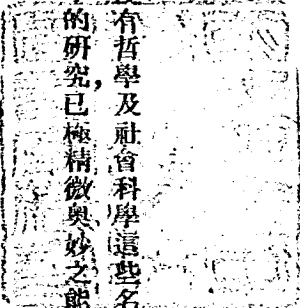 有哲學及社會科學這些名
的研究，已極精微奧妙之能